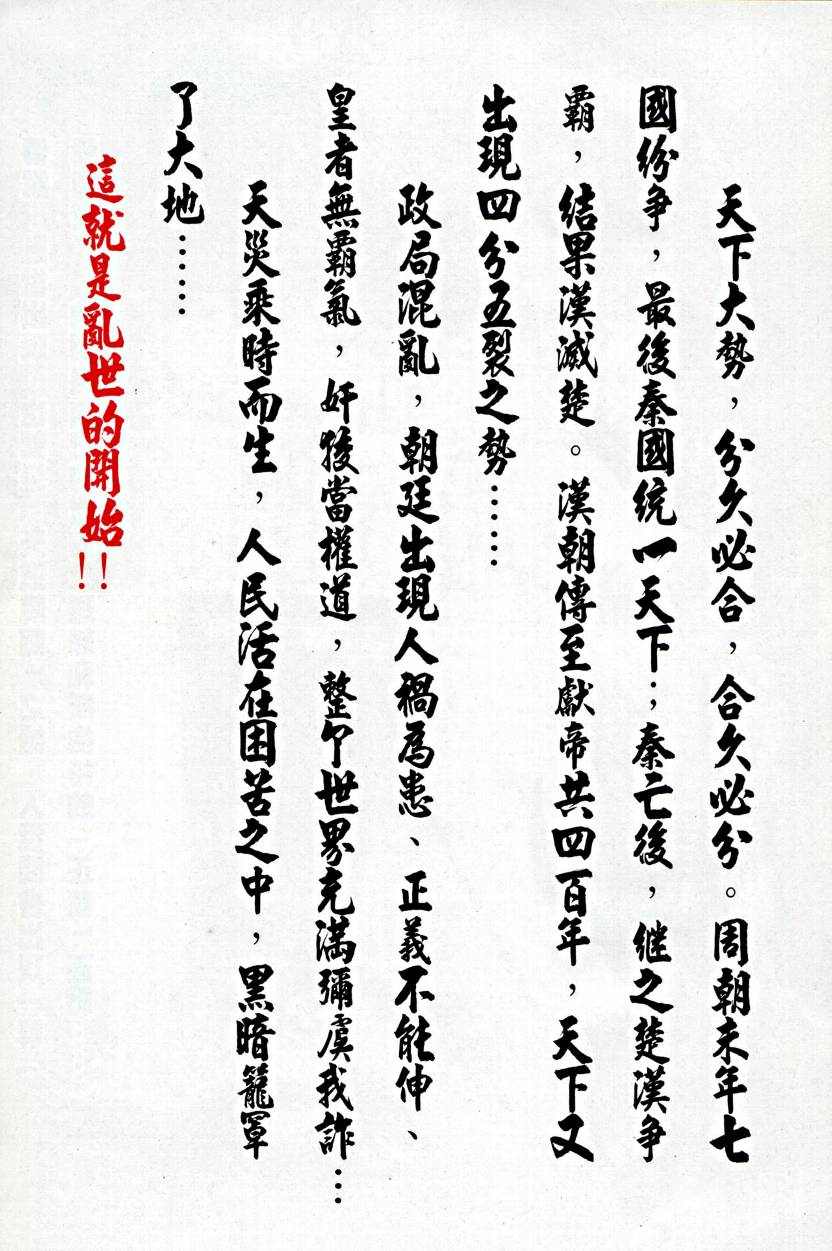 天下大勢，分久必合，合久必分。周朝末年七
國紛爭，最後秦國統一天下；秦亡後，繼之楚漢爭
霸，結果漢滅楚。漢朝傳至獻帝共四百年，天下又
出現四分五裂之勢……
政局混亂，朝廷出現人禍為患、正義不能伸、
皇者無霸氣，奸狡當權道，整个世界充滿彌虞我詐…
天災乘時而生，人民活在困苦之中，黑暗籠罩
了大地……
這就是亂世的開始!!